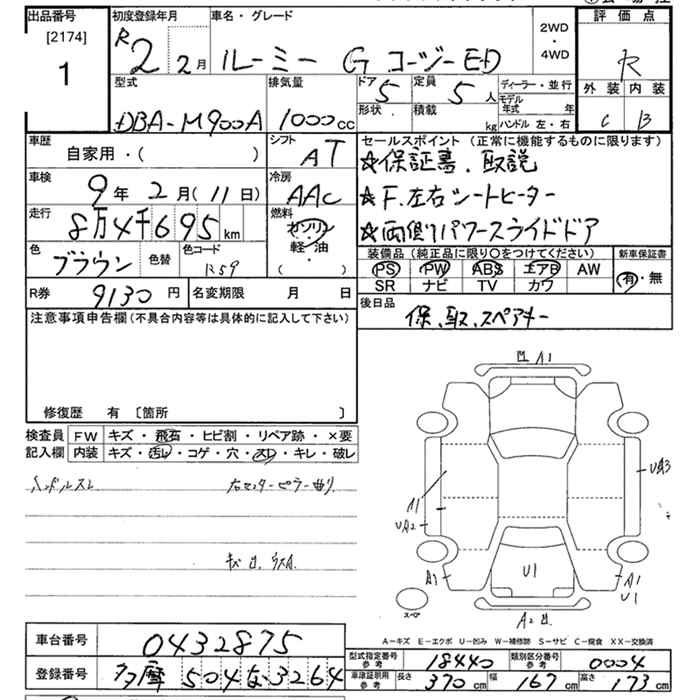 出品番号 初度登録年月 車名・グレード 2WD・4WD 評価点
[2174] R2 2月 ルーミー G コージーED R
1 型式 排気量 ドア 5 定員 5人 ディーラー・並行 外装 内装
DBA-M900A 1000cc 形状 積載 kg モデル年式 年 ハンドル 左・右 C B
車歴 自家用・( ) シフト AT セールスポイント (正常に機能するものに限ります)
☆保証書、取説
車検 9年2月(11日) 冷房 AAC ☆F.左右シートヒーター
走行 8万4千695km 燃料 ガソリン・軽油・( ) ☆両側パワースライドドア
色 ブラウン 色替 色コード 装備品 (純正品に限り○をつけてください) 新車保証書
PS PW ABS エアB AW 有・無
SR ナビ TV カワ
R券 9130円 名変期限 月 日 後日品 保、取、スペアキー
注意事項申告欄(不具合内容等は具体的に記入して下さい)
修復歴 有 〔箇所 〕
検査員記入欄 FW キズ・飛石・ヒビ割・リペア跡・×要
内装 キズ・汚レ・コゲ・穴・スレ・キレ・破レ
ハンドルスレ 右センターピラー曲り
A1
UA3
A1
UA2
U1
A1
U1
スペア
車台番号 0432875
登録番号 多摩 504 な 3264
A-キズ E-エクボ U-凹み W-補修跡 S-サビ C-腐食 XX-交換済
型式指定番号 参考 18440 類別区分番号 参考 0004
車庫証明用 参考 長さ 370cm 幅 167cm 高さ 173cm